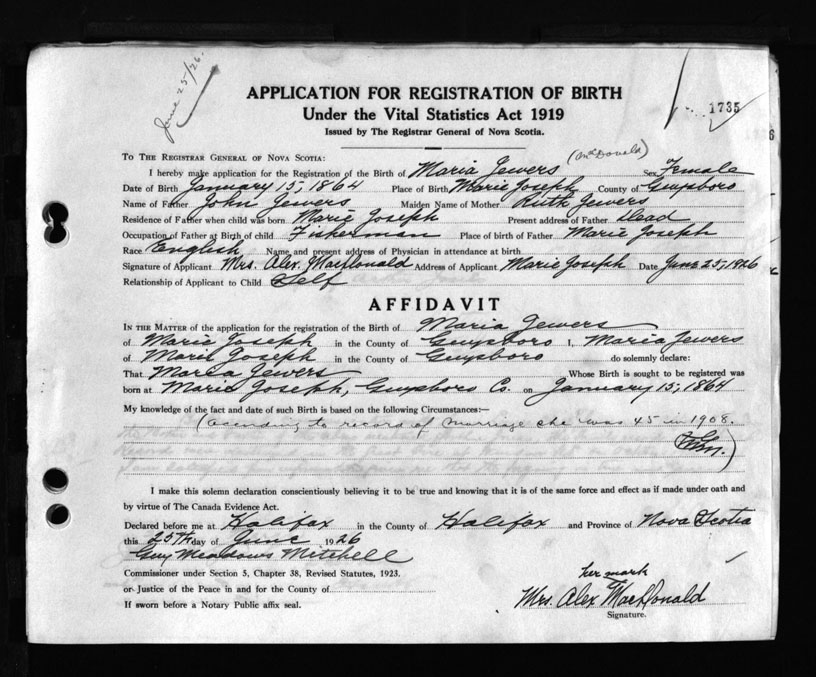 June 25/26.
APPLICATION FOR REGISTRATION OF BIRTH
Under the Vital Statistics Act 1919
Issued by The Registrar General of Nova Scotia.
1735
To The Registrar General of Nova Scotia:
(McDonald)
I hereby make application for the Registration of the Birth of Maria Jewers Sex Female
Date of Birth January 15, 1864 Place of Birth Marie Joseph County of Guysboro
Name of Father John Jewers Maiden Name of Mother Ruth Jewers
Residence of Father when child was born Marie Joseph Present address of Father Dead
Occupation of Father at Birth of child Fisherman Place of birth of Father Marie Joseph
Race English Name and present address of Physician in attendance at birth
Signature of Applicant Mrs. Alex. MacDonald Address of Applicant Marie Joseph Date June 25, 1926
Relationship of Applicant to Child Self
AFFIDAVIT
In the Matter of the application for the registration of the Birth of Maria Jewers
of Marie Joseph in the County of Guysboro I, Maria Jewers
of Marie Joseph in the County of Guysboro do solemnly declare:
That Maria Jewers Whose Birth is sought to be registered was
born at Marie Joseph, Guysboro Co. on January 15, 1864
My knowledge of the fact and date of such Birth is based on the following Circumstances:—
(According to record of marriage she was 45 in 1908.
I make this solemn declaration conscientiously believing it to be true and knowing that it is of the same force and effect as if made under oath and
by virtue of The Canada Evidence Act.
Declared before me at Halifax in the County of Halifax and Province of Nova Scotia
this 25th day of June 1926
Guy Meadows Mitchell
Commissioner under Section 5, Chapter 38, Revised Statutes, 1923.
or Justice of the Peace in and for the County of
If sworn before a Notary Public affix seal.
her mark
Mrs. Alex MacDonald
Signature.